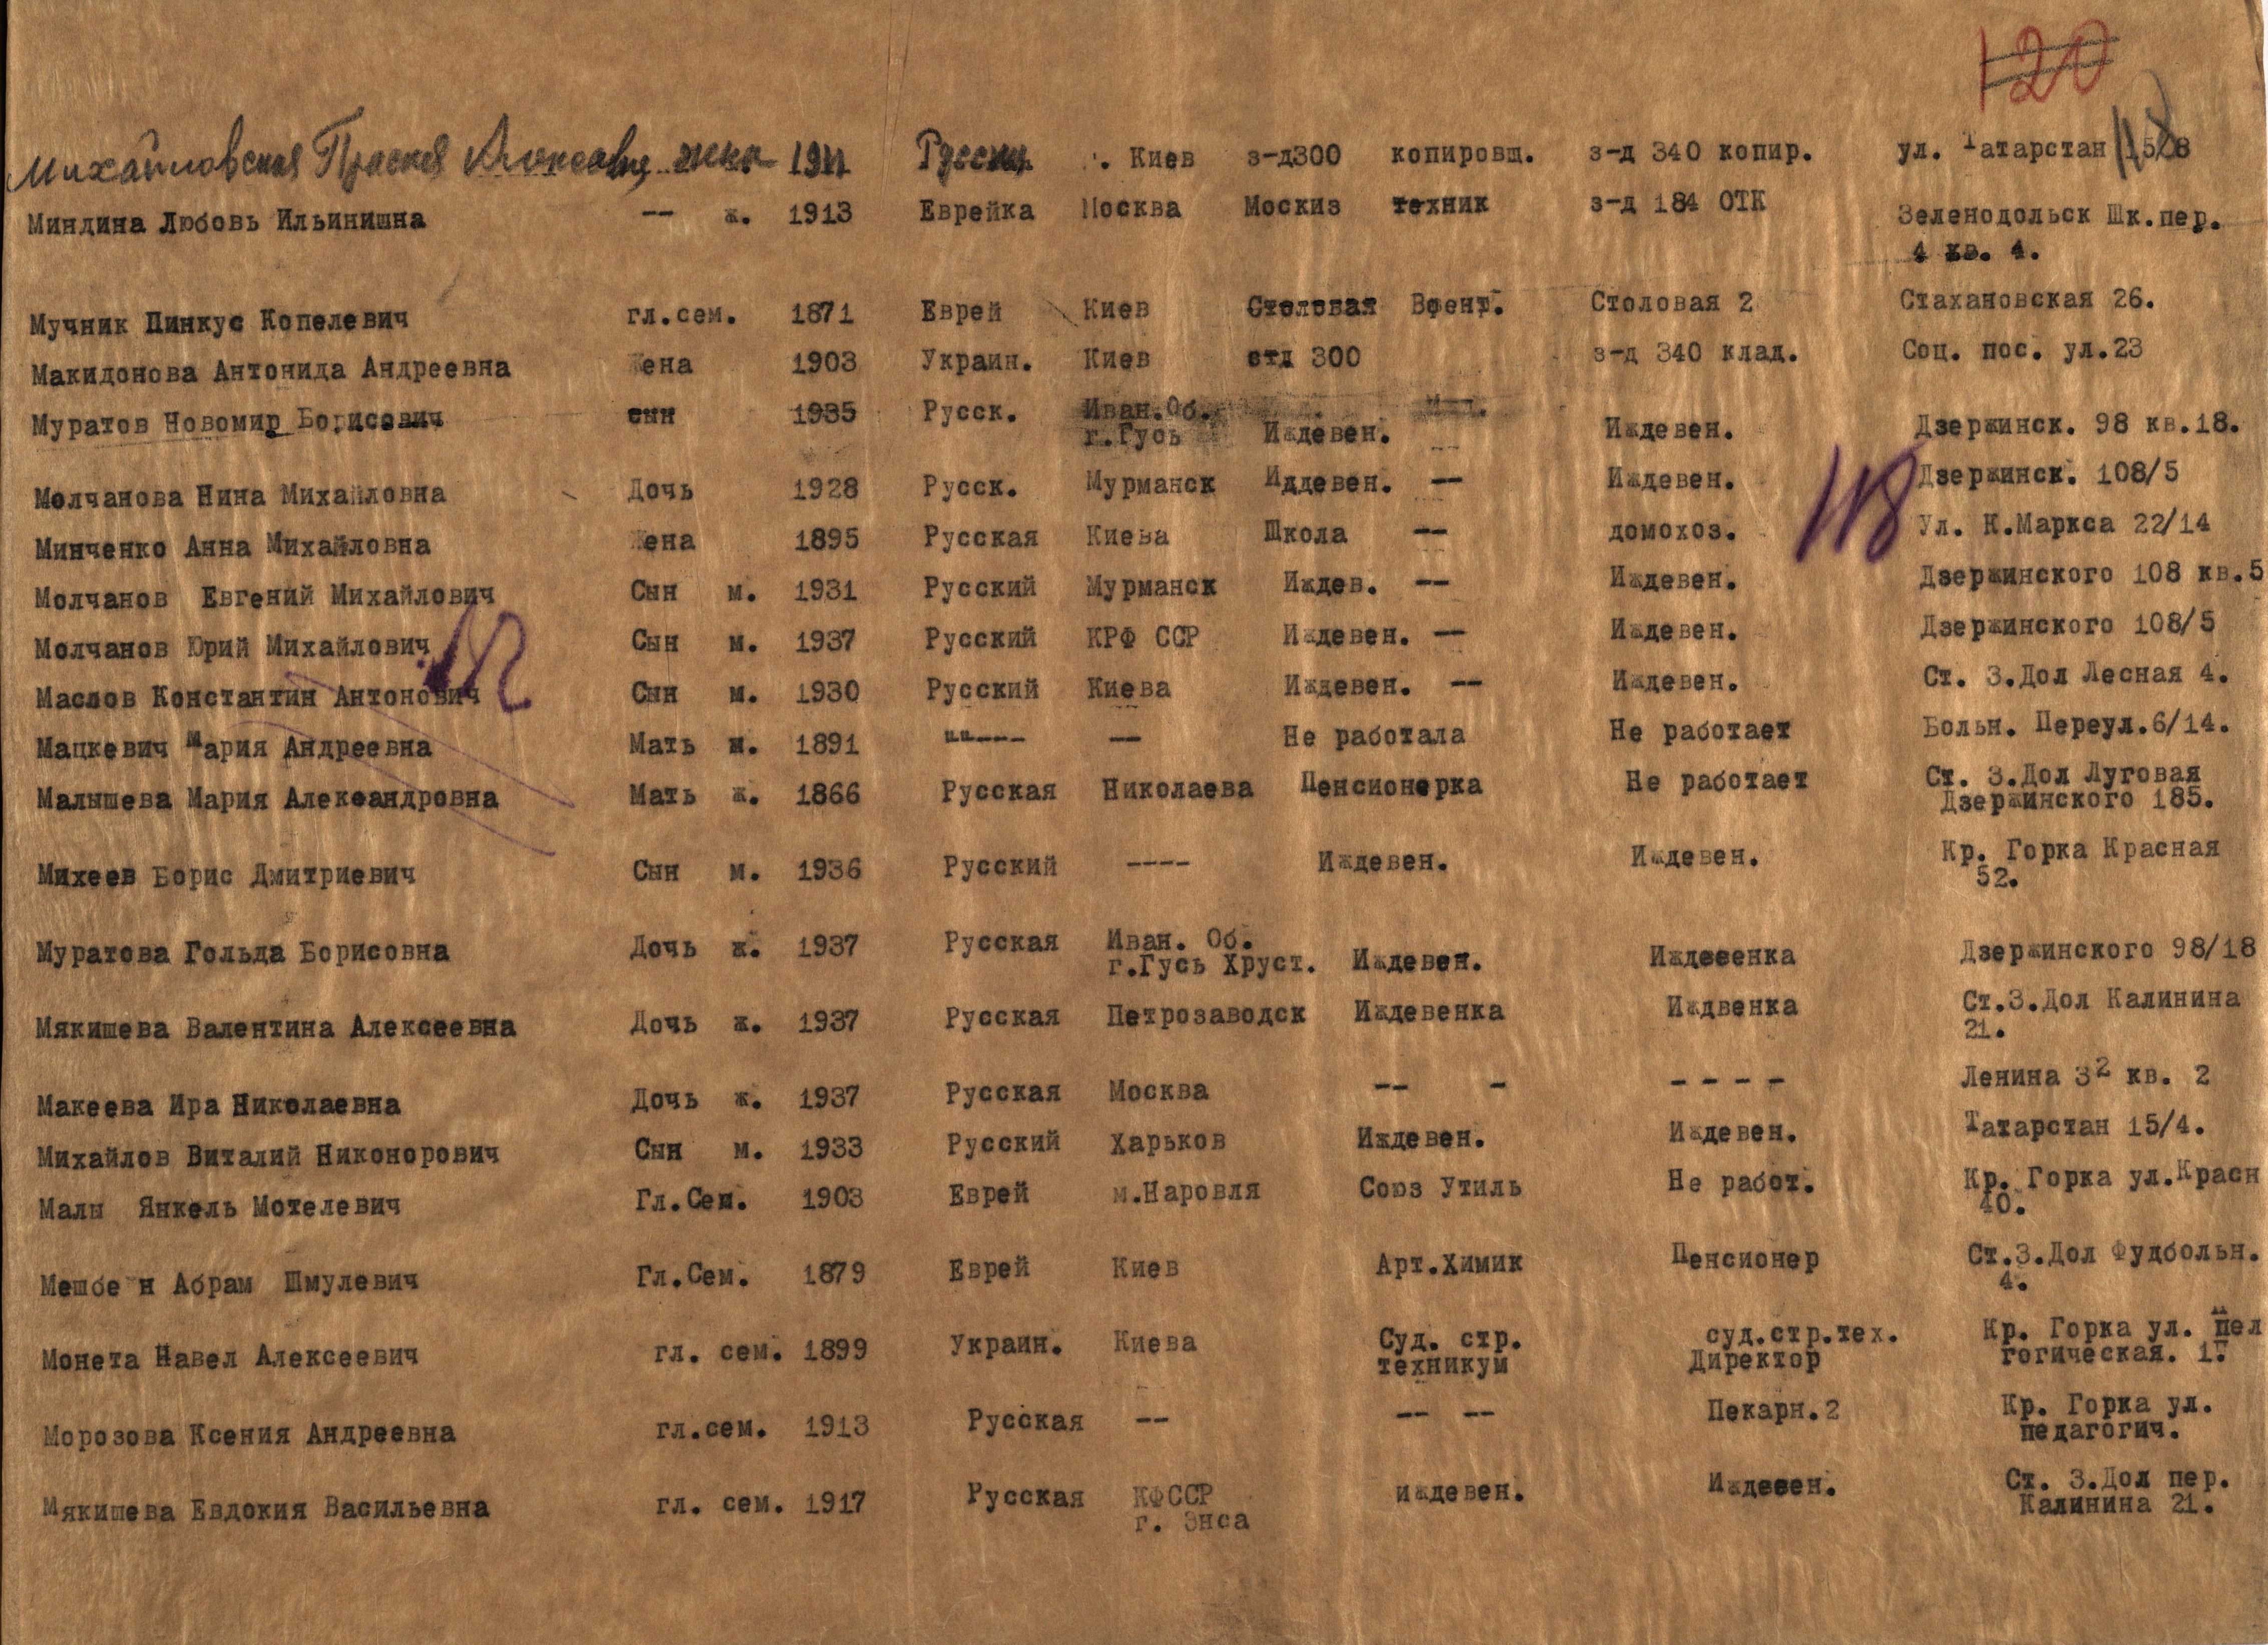 120
Михайловская жена 1911 Русск. г. Киев з-д300 копировщ. з-д 340 копир. ул. Татарстан 15/8
118
Миндина Любовь Ильинишна -- ж. 1913 Еврейка Москва Москиз техник з-д 184 ОТК Зеленодольск Шк.пер.
4 кв. 4.
Мучник Пинкус Копелевич гл.сем. 1871 Еврей Киев Столовая Столовая 2 Стахановская 26.
Макидонова Антонида Андреевна Жена 1903 Украин. Киев 300 з-д 340 клад. Соц. пос. ул.23
Муратов Новомир Борисович сын 1935 Русск. Иван.Об.
г.Гусь Иждевен. Иждевен. Дзержинск. 98 кв.18.
Молчанова Нина Михайловна Дочь 1928 Русск. Мурманск Иддевен. -- Иждевен. Дзержинск. 108/5
118
Минченко Анна Михайловна Жена 1895 Русская Киева Школа -- домохоз. Ул. К.Маркса 22/14
Молчанов Евгений Михайлович Сын м. 1931 Русский Мурманск Иждев. -- Иждевен. Дзержинского 108 кв.5
Молчанов Юрий Михайлович Сын м. 1937 Русский КРФ ССР Иждевен. -- Иждевен. Дзержинского 108/5
Маслов Константин Антонович Сын м. 1930 Русский Киева Иждевен. -- Иждевен. Ст. З.Дол Лесная 4.
Мацкевич Мария Андреевна Мать ж. 1891 ------ -- Не работала Не работает Больн. Переул.6/14.
Малышева Мария Александровна Мать ж. 1866 Русская Николаева Пенсионерка Не работает Ст. З.Дол Луговая
Дзержинского 185.
Михеев Борис Дмитриевич Сын м. 1936 Русский ---- Иждевен. Иждевен. Кр. Горка Красная
52.
Муратова Гольда Борисовна Дочь ж. 1937 Русская Иван. Об.
г.Гусь Хруст. Иждевен. Иждевенка Дзержинского 98/18
Мякишева Валентина Алексеевна Дочь ж. 1937 Русская Петрозаводск Иждевенка Иждвенка Ст.З.Дол Калинина
21.
Макеева Ира Николаевна Дочь ж. 1937 Русская Москва -- - - - - - Ленина 32 кв. 2
Михайлов Виталий Никонорович Сын м. 1933 Русский Харьков Иждевен. Иждевен. Татарстан 15/4.
Малы Янкель Мотелевич Гл.Сем. 1903 Еврей м.Наровля Союз Утиль Не работ. Кр. Горка ул.Красн
40.
Мешбе н Абрам Шмулевич Гл.Сем. 1879 Еврей Киев Арт.Химик Пенсионер Ст.З.Дол Фудбольн.
4.
Монета Павел Алексеевич гл. сем. 1899 Украин. Киева Суд. стр. суд.стр.тех. Кр. Горка ул. пел
техникум Директор гогическая. 1.
Морозова Ксения Андреевна гл.сем. 1913 Русская -- -- -- Пекарн.2 Кр. Горка ул.
педагогич.
Мякишева Евдокия Васильевна гл. сем. 1917 Русская КФССР иждевен. Иждевен. Ст. З.Дол пер.
г. Энса Калинина 21.